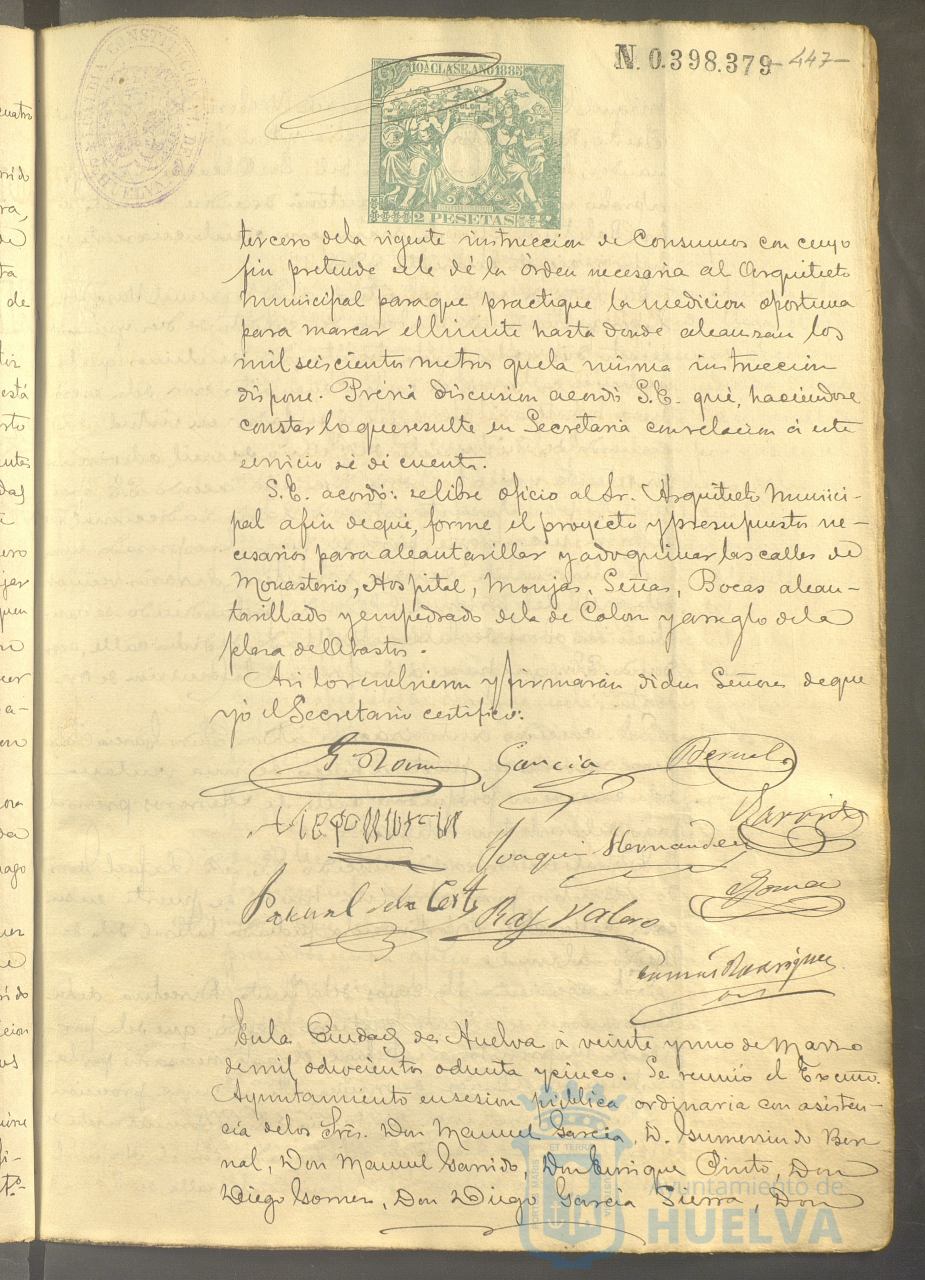 N. 0.398.379 -447-
ALCALDIA CONSTITUCIONAL DE HUELVA
10ª CLASE. AÑO 1885
2 PESETAS
tercero dela vigente instruccion de Consumos con cuyo
fin pretende se le dé la órden necesaria al Arquitecto
municipal paraque practique la medicion oportuna
para marcar el limite hasta donde alcanzan los
mil seiscientos metros quela misma instruccion
dispone. Prévia discusion acordó S.E. que, haciendose
constar lo queresulte en Secretaria conrelacion á este
servicio se dé cuenta.
S.E. acordó: selibre oficio al Sr. Arquitecto Munici-
pal afin deque, forme el proyecto y presupuestos ne-
cesarios para alcantarillar y adoquinar las calles de
Monasterio, Hospital, Monjas, Señas, Bocas alcan-
tarillado y empedrado dela de Colon y arreglo dela
plaza de Abastos.
Asi lo resolvieron y firmarán dichos Señores deque
yó el Secretario certifico:
Garcia Bernal
Garrido
Joaquin Hernandez
Gomez
Pascual de la Corte Raf Valero
Tomás Rodriguez
Enla Ciudad de Huelva á veinte y uno de Marzo
demil ochocientos ochenta y cinco. Se reunió el Excmo.
Ayuntamiento ensesion pública ordinaria con asisten-
cia delos Sres. Don Manuel Garcia, D. Gumersindo Ber-
nal, Don Manuel Garrido, Don Enrique Pinto, Don
Diego Gomez, Don Diego Garcia Sierra, Don
Ayuntamiento de
HUELVA